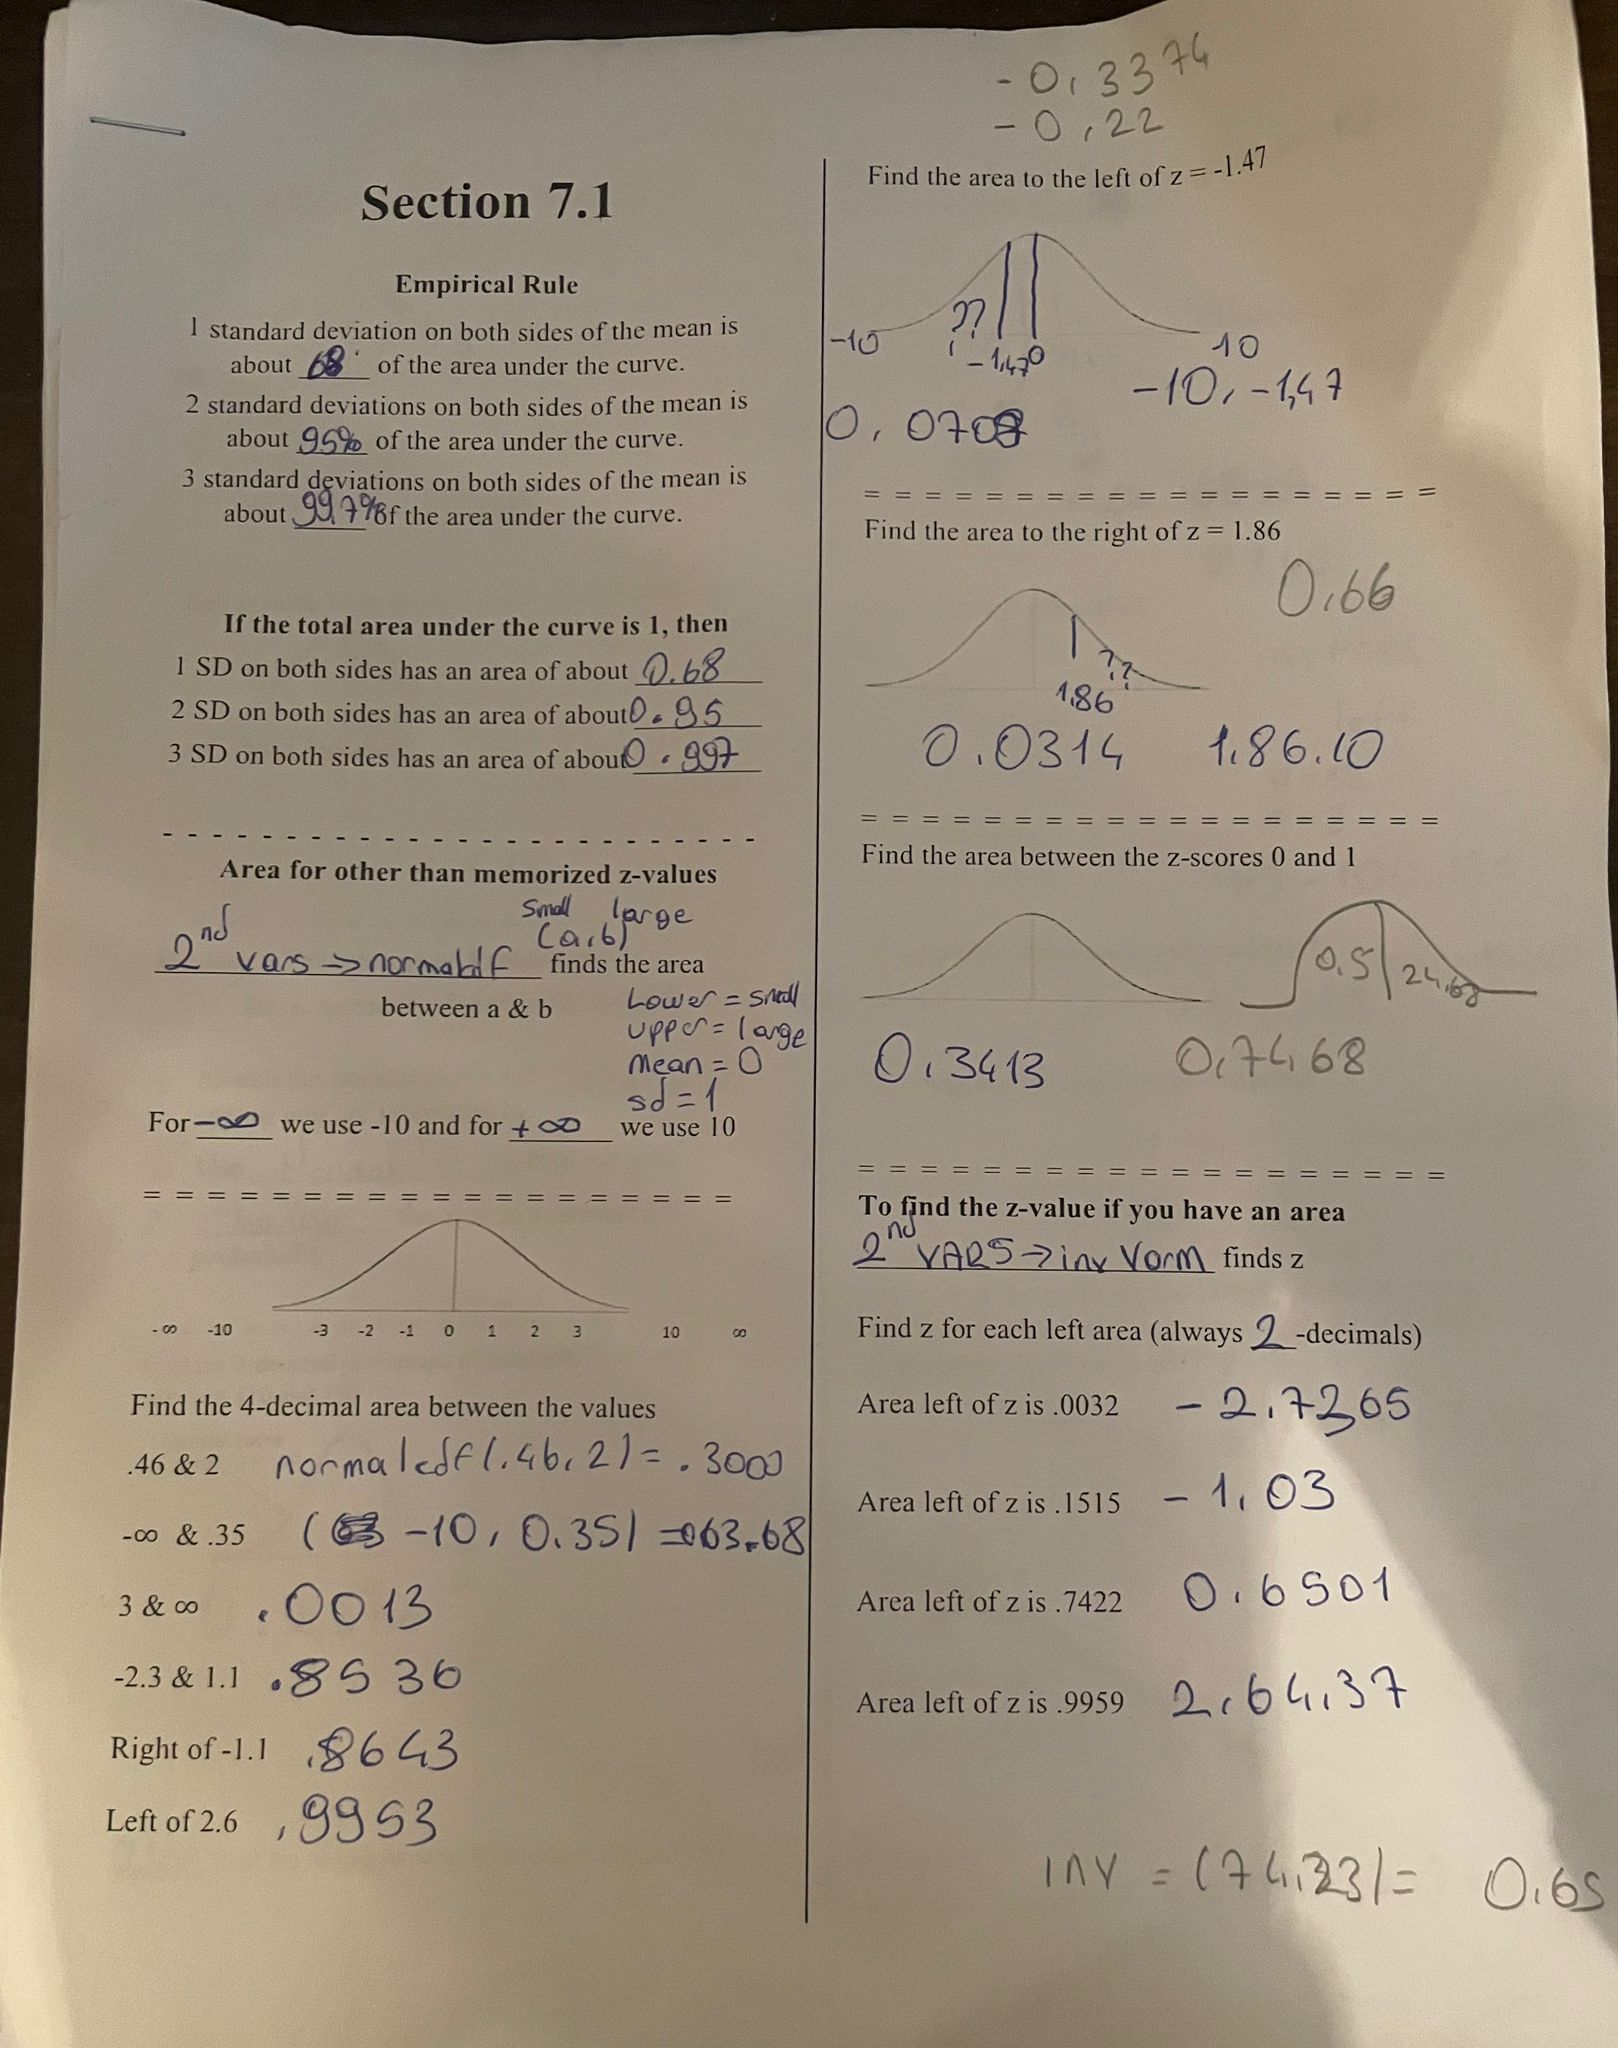 Section 7.1
Empirical Rule
1 standard deviation on both sides of the mean is
about 68 of the area under the curve.
2 standard deviations on both sides of the mean is
about 95% of the area under the curve.
3 standard deviations on both sides of the mean is
about 99.7% of the area under the curve.
If the total area under the curve is 1, then
1 SD on both sides has an area of about 0.68
2 SD on both sides has an area of about 0.95
3 SD on both sides has an area of about 0.997
- - - - - - - - - - - - - - - - - - - - - - - -
Area for other than memorized z-values
small large
(a,b)
2nd vars → normaldf finds the area
between a & b
Lower = small
upper = large
mean = 0
sd = 1
For -∞ we use -10 and for +∞ we use 10
= = = = = = = = = = = = = = = = = = =
-∞ -10 -3 -2 -1 0 1 2 3 10 ∞
Find the 4-decimal area between the values
.46 & 2 normalcdf(.46,2) = .3000
-∞ & .35 ( -10, 0.35) = 063.68
3 & ∞ .0013
-2.3 & 1.1 .8536
Right of -1.1 .8643
Left of 2.6 .9953
-0,3374
-0,22
Find the area to the left of z = -1.47
??
-10 -1,47 0 10
-10, -1,47
0,0708
= = = = = = = = = = = = = = = = = = =
Find the area to the right of z = 1.86
0,66
??
1.86
0.0314 1.86.10
= = = = = = = = = = = = = = = = = = =
Find the area between the z-scores 0 and 1
0,5 24,68
0,3413 0,7468
= = = = = = = = = = = = = = = = = = =
To find the z-value if you have an area
2nd VARS → inv Vorm finds z
Find z for each left area (always 2 -decimals)
Area left of z is .0032 -2,7265
Area left of z is .1515 -1,03
Area left of z is .7422 0.6501
Area left of z is .9959 2,64,37
inv = (74,23) = 0.65